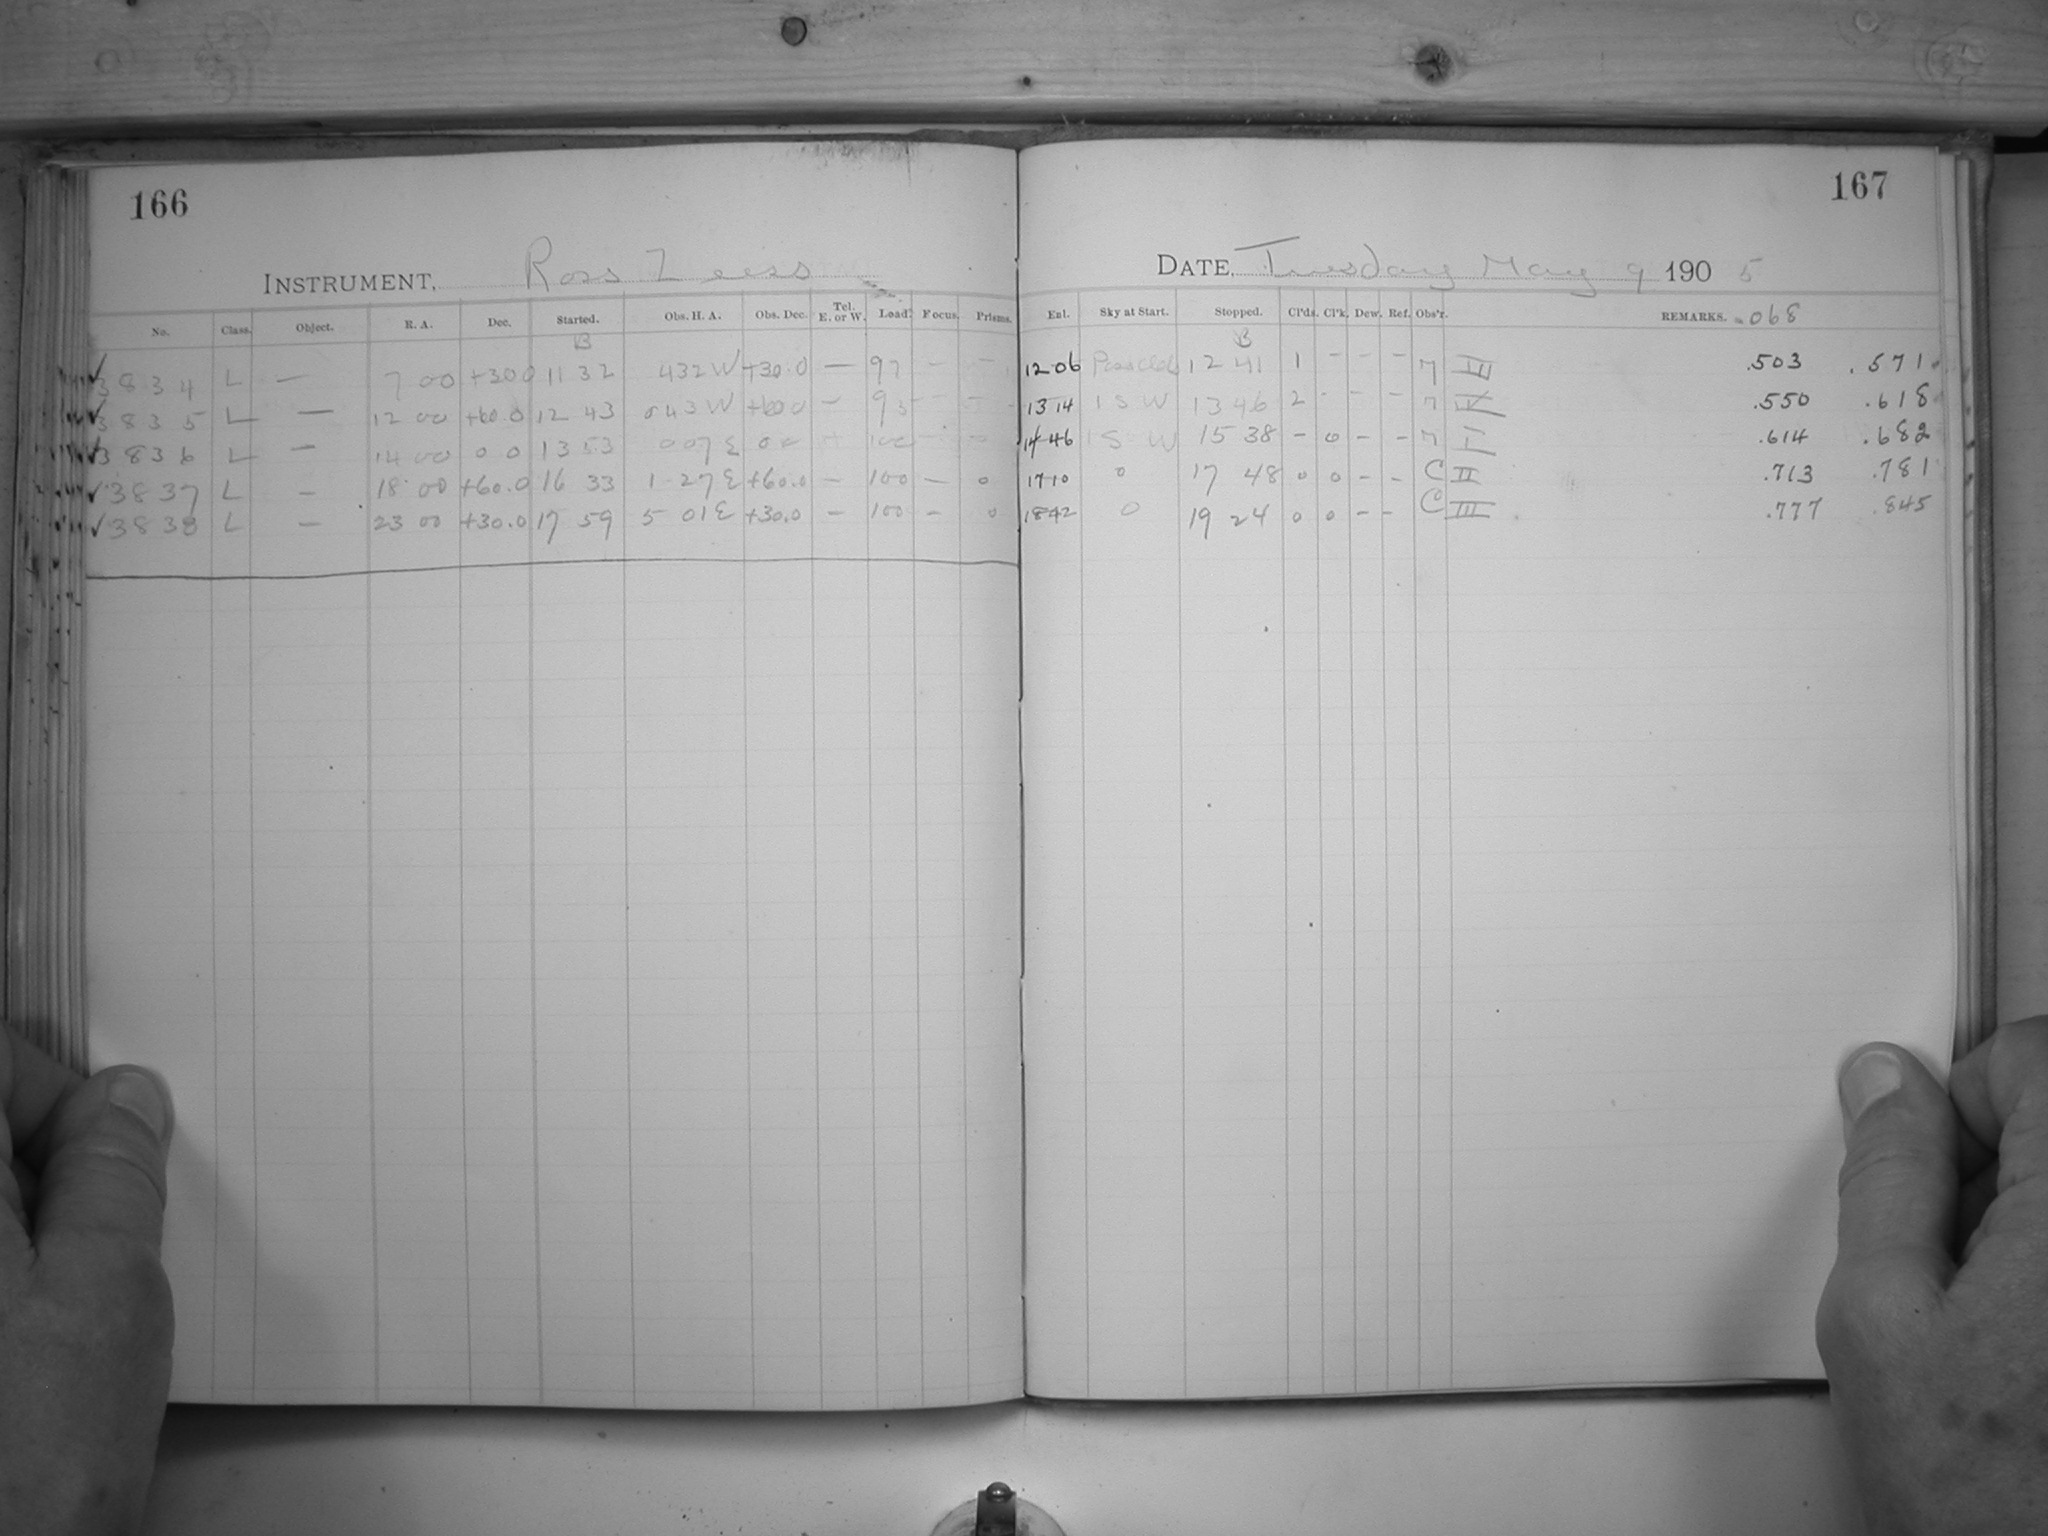 166
INSTRUMENT, Ross Zeiss
No. Class. Object. R. A. Dec. Started. Obs. H. A. Obs. Dec. Tel. E. or W. Load. Focus. Prisms.
B
✓3834 L — 7 00 +30 0 11 32 4 32 W +30.0 — 97 — —
✓3835 L — 12 00 +60.0 12 43 0 43 W +60 0 — 95 — —
✓3836 L — 14 00 0 0 13 53 0 07 E 0 0 100 — 0
✓3837 L — 18 00 +60.0 16 33 1 27 E +60.0 — 100 — 0
✓3838 L — 23 00 +30.0 17 59 5 01 E +30.0 — 100 — 0
167
DATE, Tuesday May 9 1905
Ent. Sky at Start. Stopped. Cl'ds. Cl'k. Dew. Ref. Obs'r. REMARKS. .068
B
12 06 12 41 1 – – – M III .503 .571
13 14 1 S W 13 46 2 – – – M IV .550 .618
14 46 1 S W 15 38 – 0 – – M I .614 .682
17 10 0 17 48 0 0 – – C II .713 .781
18 42 0 19 24 0 0 – – C III .777 .845